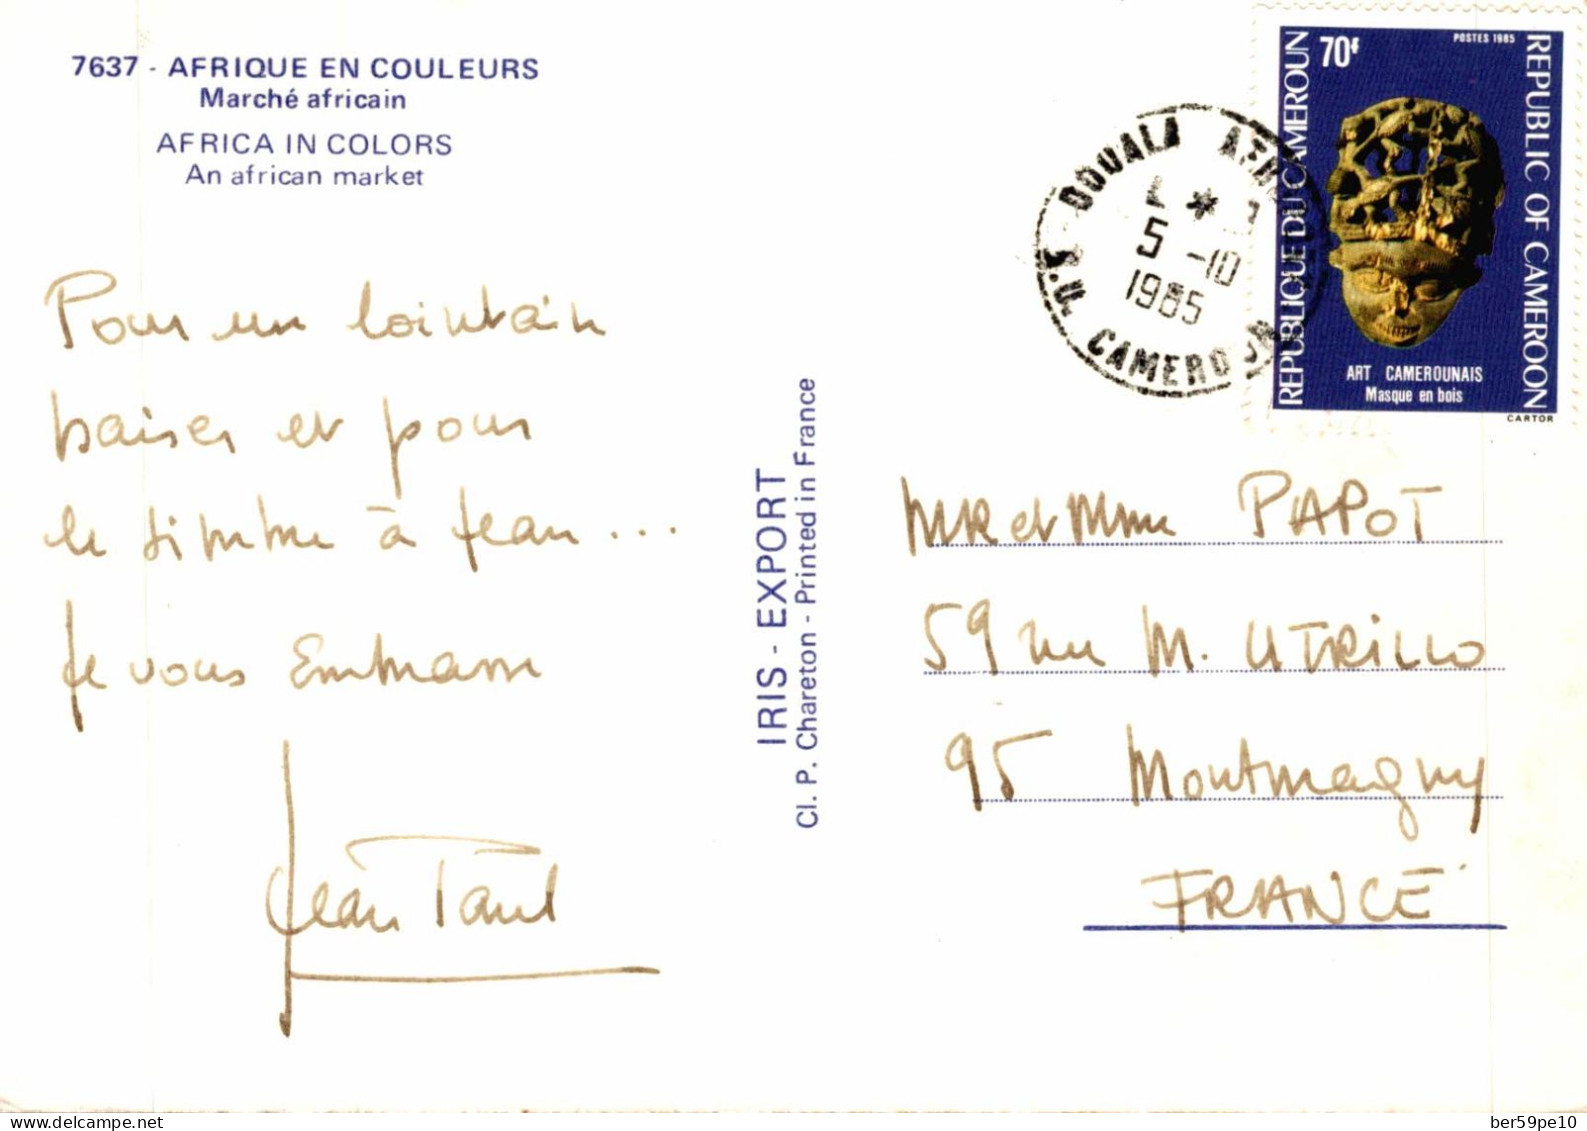 7637 - AFRIQUE EN COULEURS
Marché africain
AFRICA IN COLORS
An african market
Pour un lointain
baiser et pour
le timbre à Jean...
Je vous Embrasse
Jean Paul
IRIS - EXPORT
Cl. P. Chareton - Printed in France
DOUALA
S.U. CAMEROUN
5 -10
1985
REPUBLIQUE DU CAMEROUN
70F
POSTES 1985
REPUBLIC OF CAMEROON
ART CAMEROUNAIS
Masque en bois
CARTOR
MR et Mme PAPOT
59 rue M. UTRILLO
95 Montmagny
FRANCE
ber59pe10